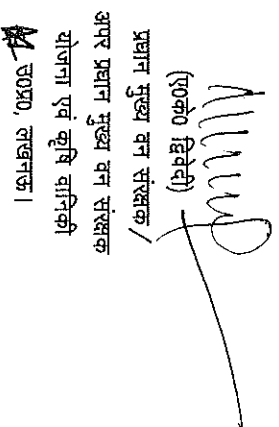 (ए०के० द्विवेदी)
प्रधान मुख्य वन संरक्षक/
अपर प्रधान मुख्य वन संरक्षक
योजना एवं कृषि वानिकी
उ०प्र०, लखनऊ।